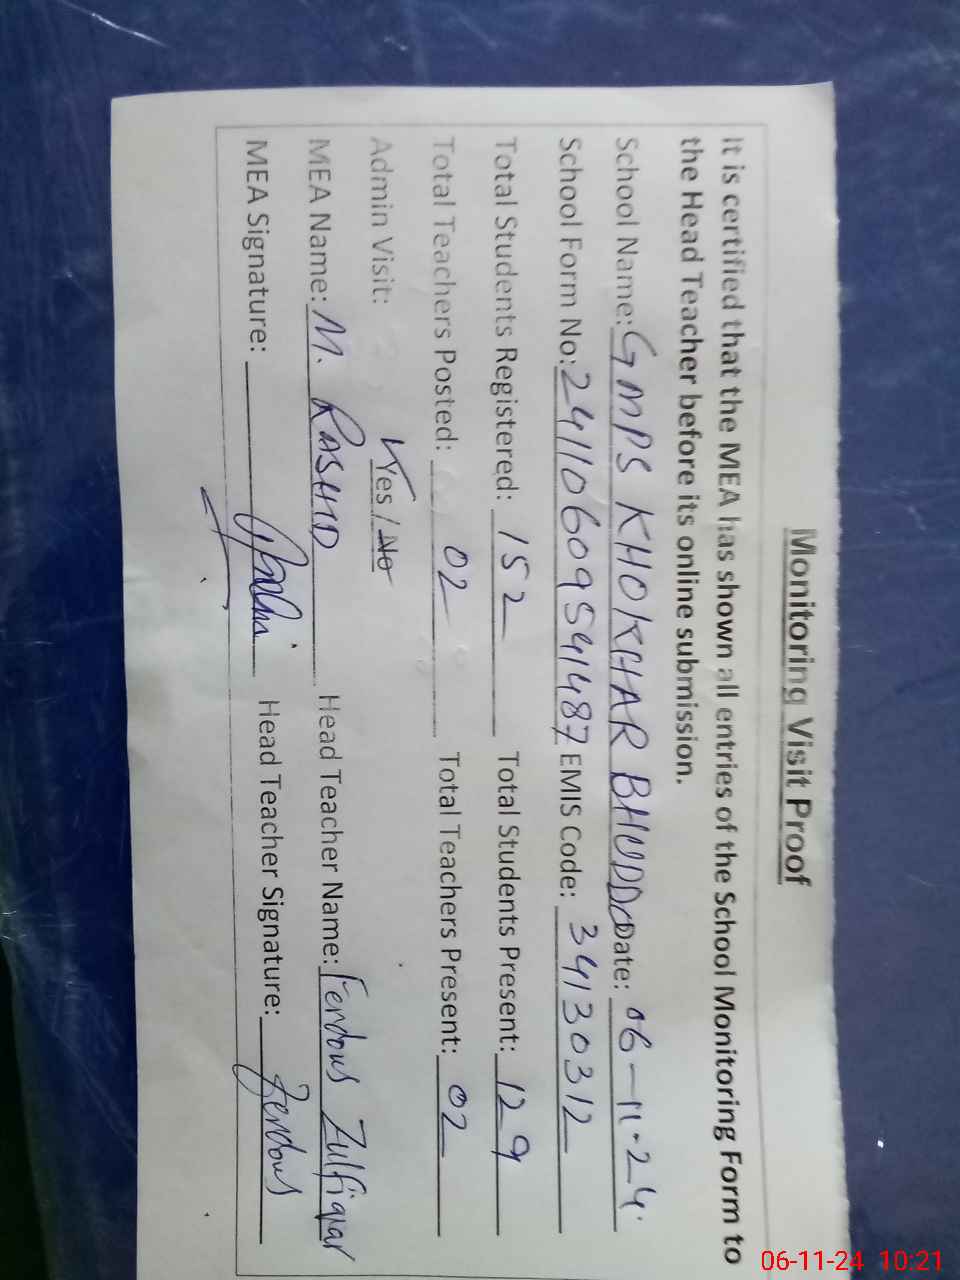 Monitoring Visit Proof
It is certified that the MEA has shown all entries of the School Monitoring Form to
the Head Teacher before its online submission.
School Name: GMPS KHOKHAR BHUDDO Date: 06-11-24.
School Form No: 24110609541487 EMIS Code: 34130312
Total Students Registered: 152 Total Students Present: 129
Total Teachers Posted: 02 Total Teachers Present: 02
Admin Visit: Yes / No
MEA Name: M. RASHID Head Teacher Name: Ferdous Zulfiqar
MEA Signature: Head Teacher Signature: Ferdous
06-11-24 10:21